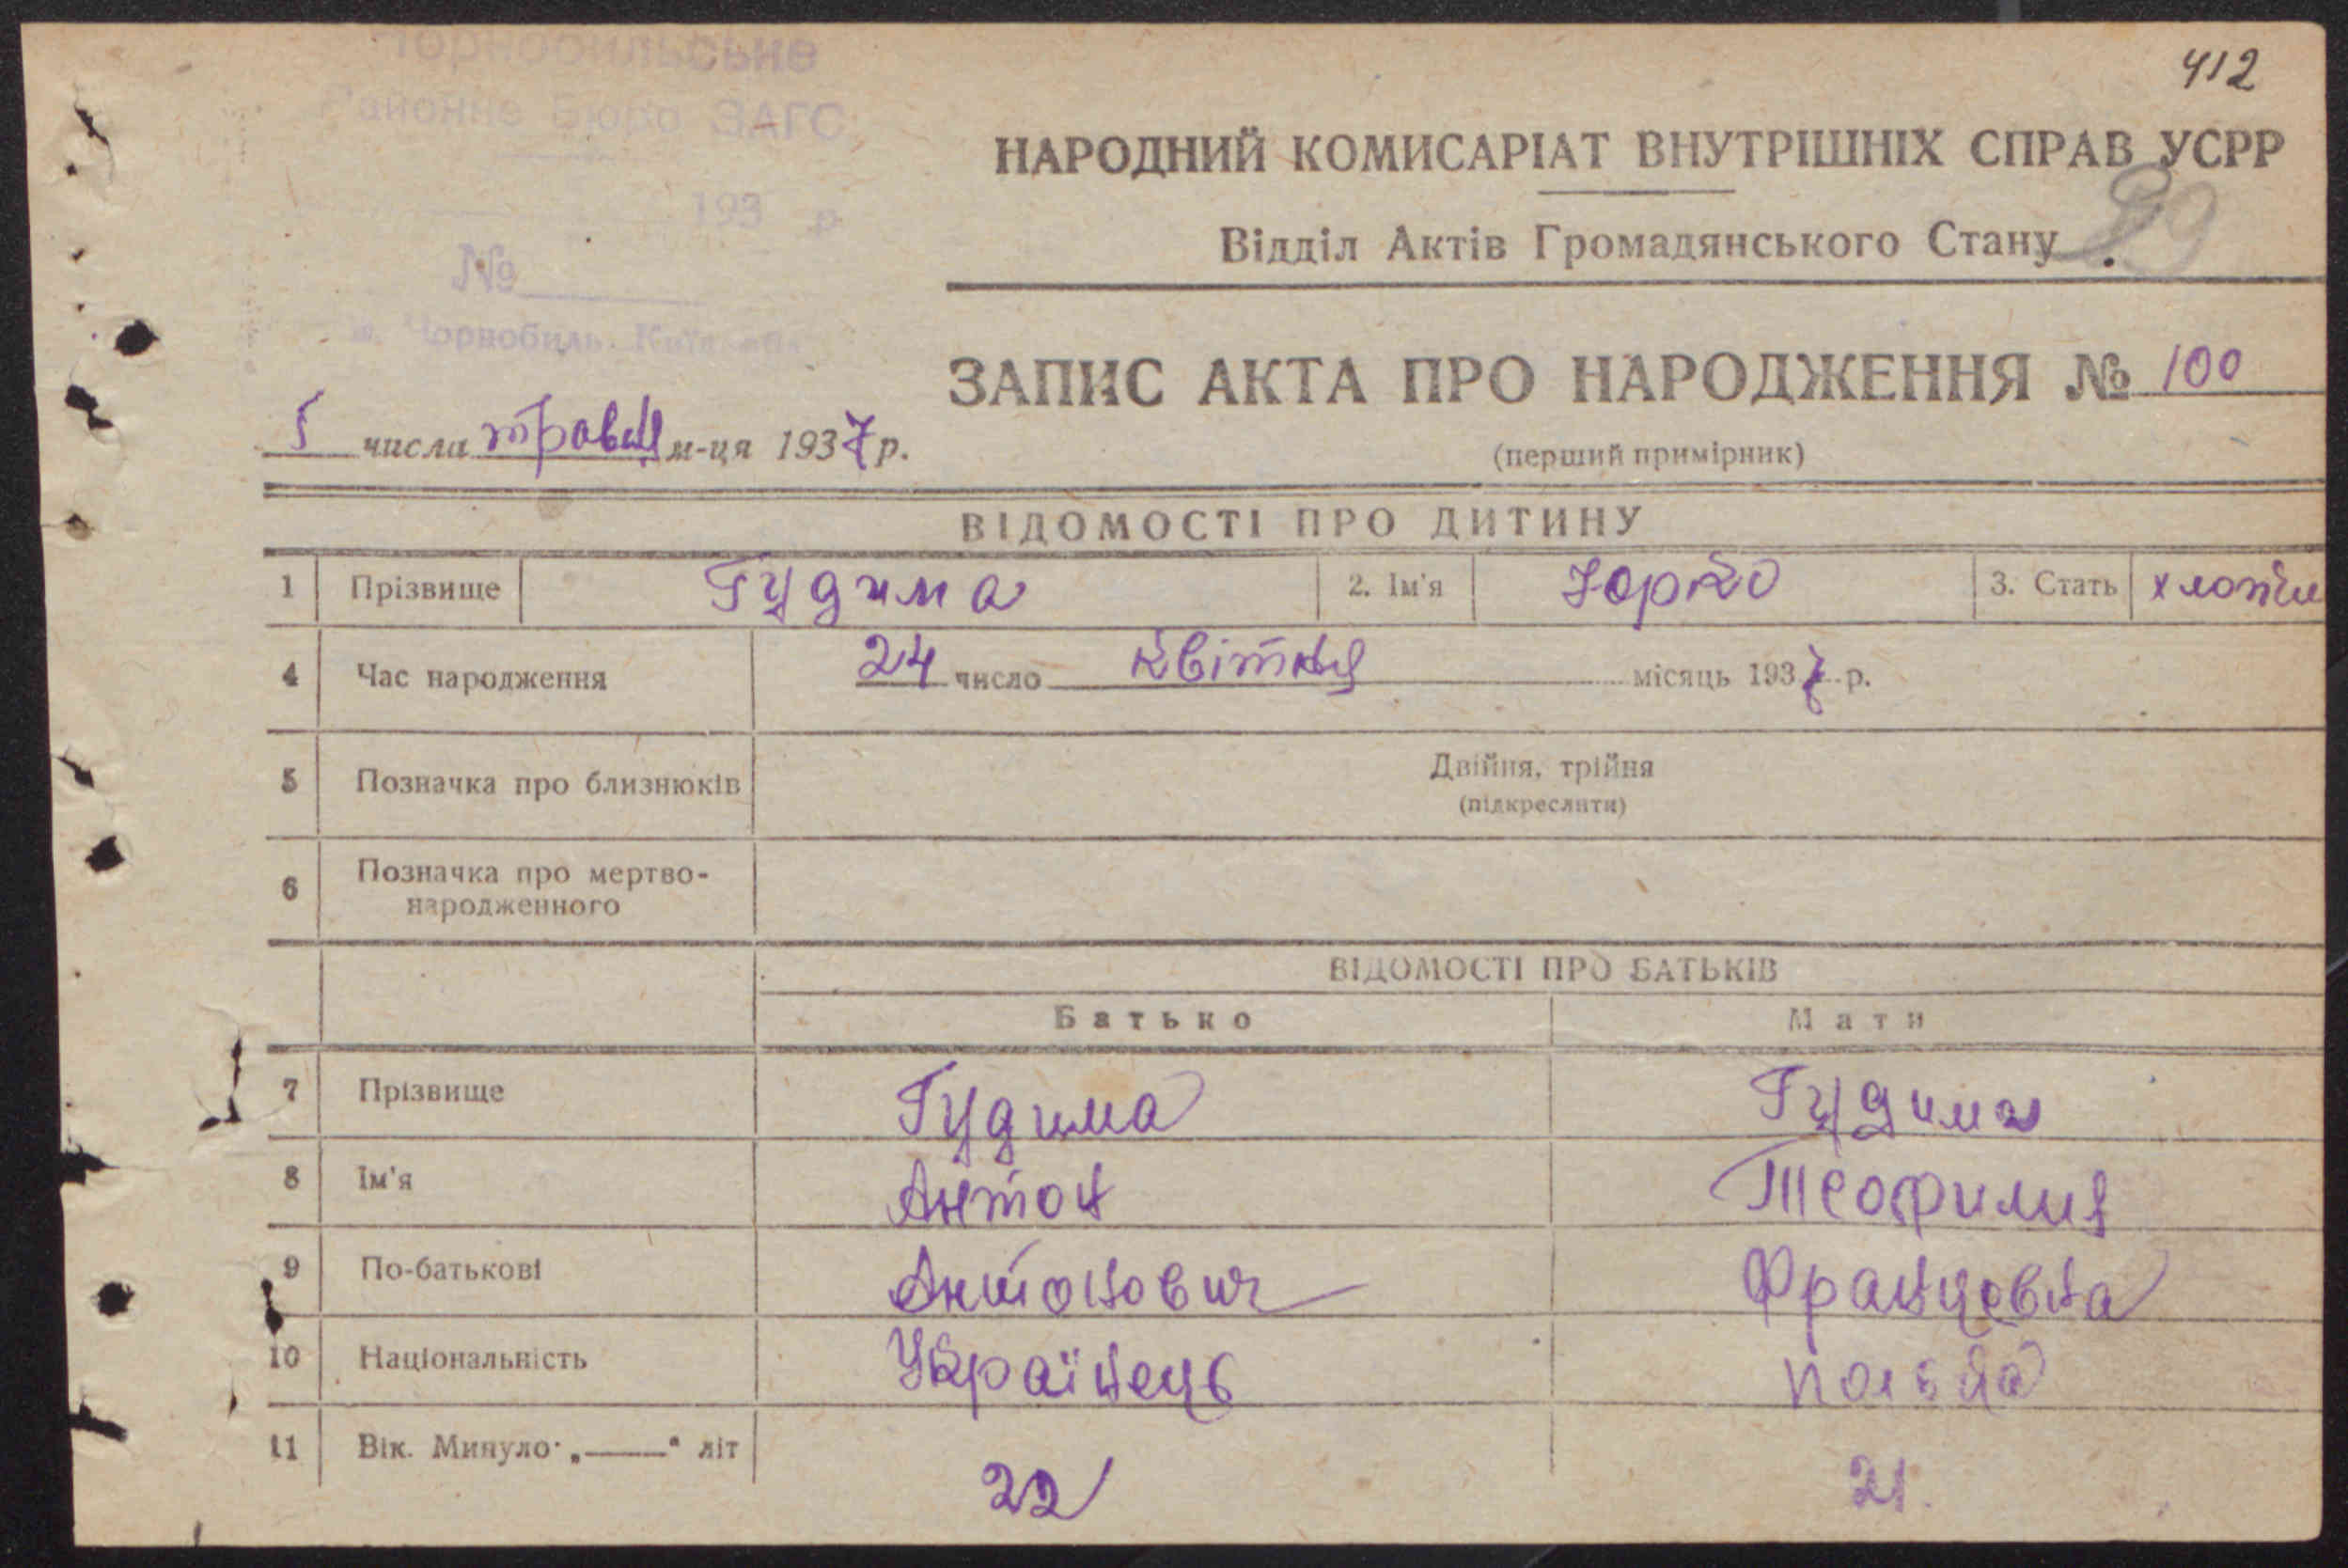 412
Чорнобильське
Районне Бюро ЗАГС
193 р
№
м. Чорнобиль
НАРОДНИЙ КОМИСАРІАТ ВНУТРІШНІХ СПРАВ УСРР
Відділ Актів Громадянського Стану
29
ЗАПИС АКТА ПРО НАРОДЖЕННЯ № 100
(перший примірник)
5 числа травня м-ця 1937 р.
ВІДОМОСТІ ПРО ДИТИНУ
1 Прізвище Гудима 2. Ім'я Юрко 3. Стать
4 Час народження 24 число квітня місяць 1937 р.
5 Позначка про близнюків Двійня, трійня
(підкреслити)
6 Позначка про мертво-
народженного
ВІДОМОСТІ ПРО БАТЬКІВ
Батько Мати
7 Прізвище Гудима Гудима
8 Ім'я Антон Теофилия
9 По-батькові Антонович Францовна
10 Національність Українець полька
11 Вік. Минуло „——“ літ 22 21.